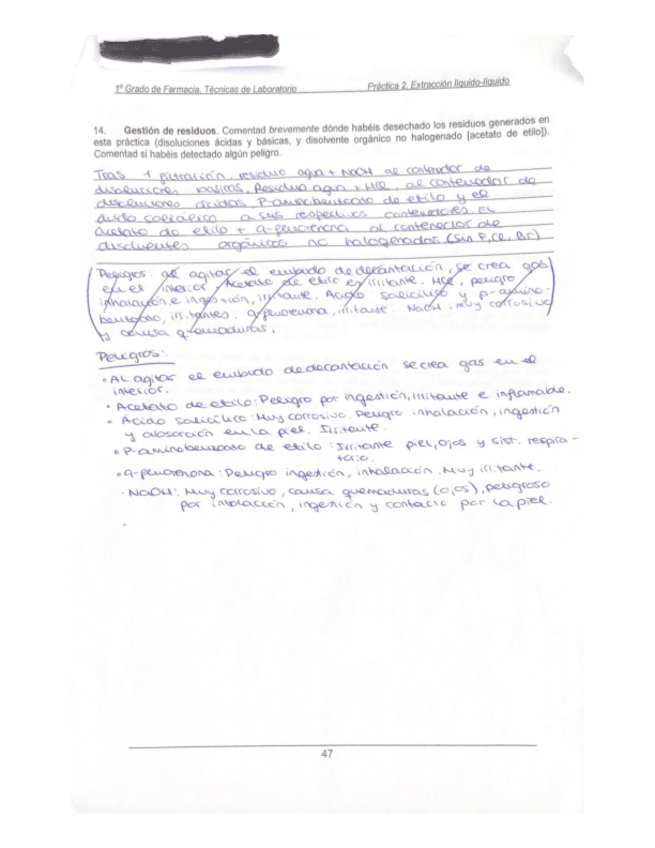 1º Grado de Farmacia. Técnicas de Laboratorio
Práctica 2. Extracción líquido-líquido
14. Gestión de residuos. Comentad brevemente dónde habéis desechado los residuos generados en
esta práctica (disoluciones ácidas y básicas, y disolvente orgánico no halogenado [acetato de etilo]).
Comentad si habéis detectado algún peligro.
Tras 1 filtración, residuo agua + NaOH al contenedor de
disoluciones básicas. Residuo agua + HCl, al contenedor de
disoluciones ácidas. P-aminobenzoato de etilo y el
ácido salicílico a sus respectivos contenedores. El
acetato de etilo + 9-fluorenona al contenedor de
disolventes orgánicos no halogenados (sin F, Cl, Br)
Peligros: al agitar el embudo de decantación, se crea gas
en el interior. Acetato de etilo es irritante. HCl, peligro
inhalación e ingestión, irritante. Acido salicílico y p-amino-
benzoato, irritantes. 9-fluorenona, irritante. NaOH, muy corrosivo
y causa quemaduras.
Peligros:
• Al agitar el embudo de decantación se crea gas en el
interior.
• Acetato de etilo: Peligro por ingestión, irritante e inflamable.
• Ácido salicílico: Muy corrosivo. Peligro inhalación, ingestión
y absorción en la piel. Irritante.
• P-aminobenzoato de etilo: Irritante piel, ojos y sist. respira-
torio.
• 9-fluorenona: Peligro ingestión, inhalación. Muy irritante.
· NaOH: Muy corrosivo, causa quemaduras (ojos), peligroso
por inhalación, ingestión y contacto por la piel.
47